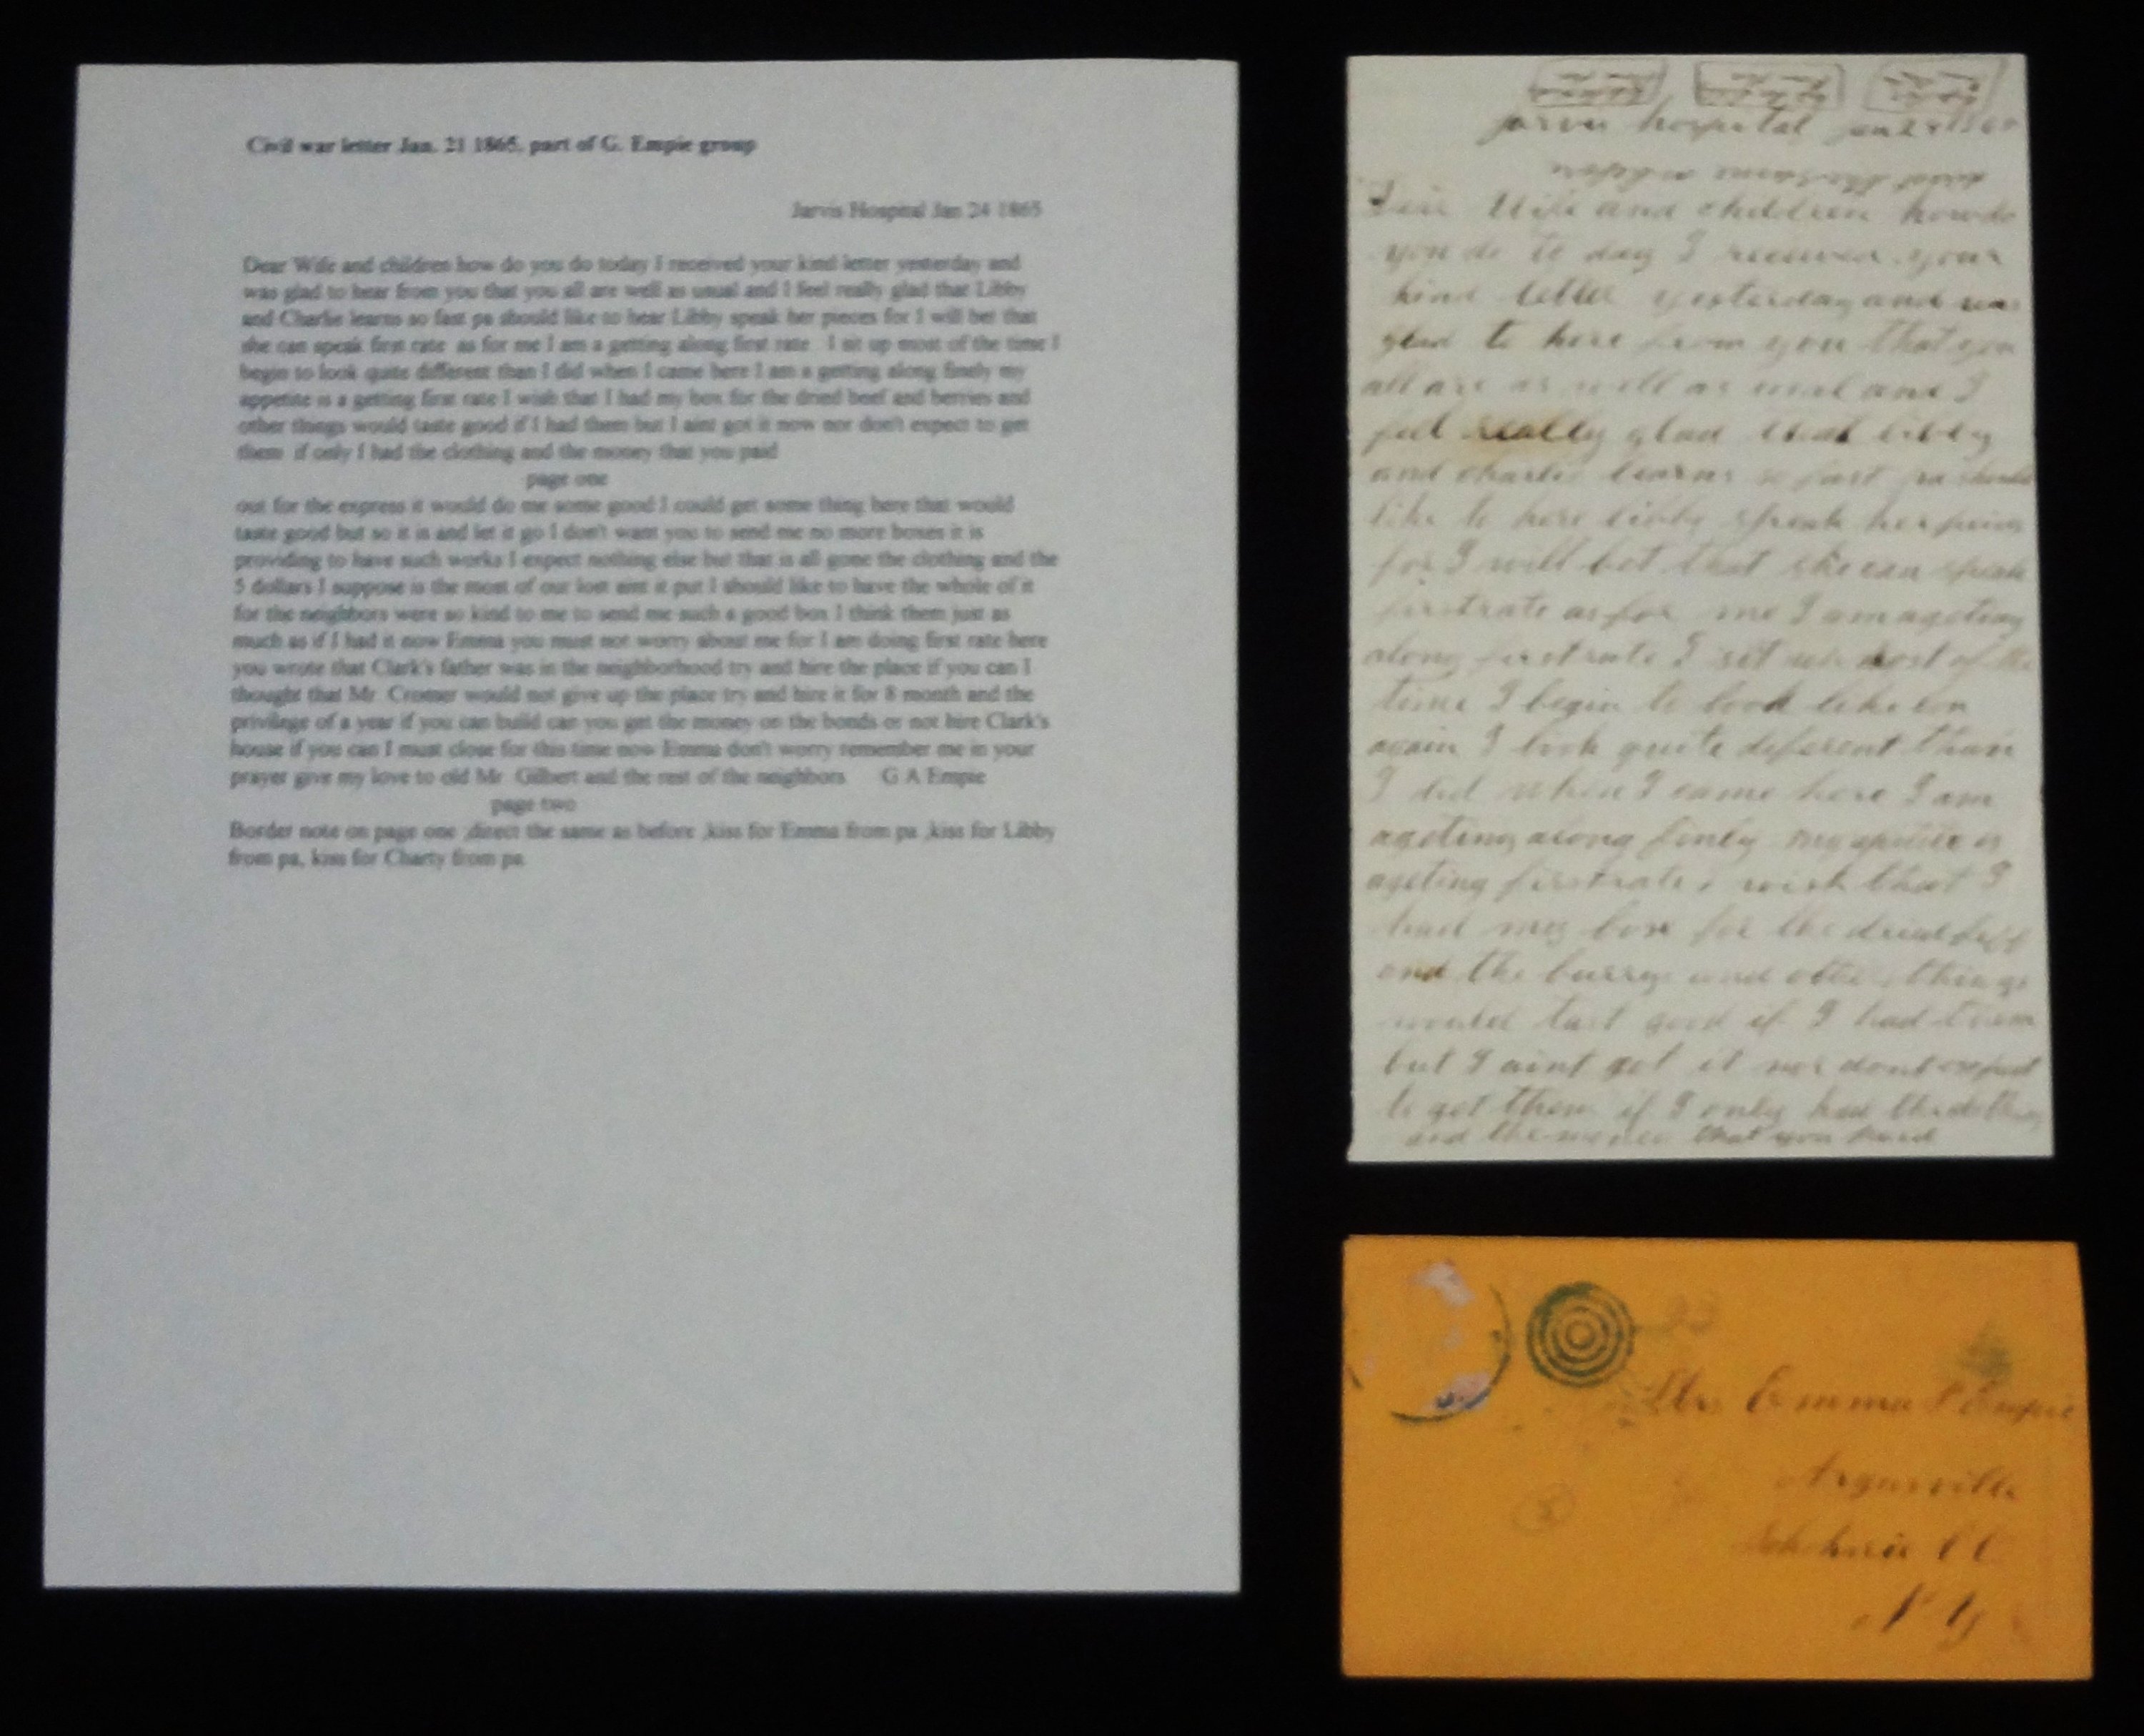 Civil war letter Jan. 21 1865, part of G. Empie group
Jarvis Hospital Jan 24 1865
Dear Wife and children how do you do today I received your kind letter yesterday and
was glad to hear from you that you all are well as usual and I feel really glad that Libby
and Charlie learns so fast pa should like to hear Libby speak her pieces for I will bet that
she can speak first rate as for me I am a getting along first rate I sit up most of the time I
begin to look quite different than I did when I came here I am a getting along finely my
appetite is a getting first rate I wish that I had my box for the dried beef and berries and
other things would taste good if I had them but I aint got it now nor don't expect to get
them if only I had the clothing and the money that you paid
page one
out for the express it would do me some good I could get some thing here that would
taste good but so it is and let it go I don't want you to send me no more boxes it is
providing to have such works I expect nothing else but that is all gone the clothing and the
5 dollars I suppose is the most of our lost aint it put I should like to have the whole of it
for the neighbors were so kind to me to send me such a good box I think them just as
much as if I had it now Emma you must not worry about me for I am doing first rate here
you wrote that Clark's father was in the neighborhood try and hire the place if you can I
thought that Mr. Cromer would not give up the place try and hire it for 8 month and the
privilege of a year if you can build can you get the money on the bonds or not hire Clark's
house if you can I must close for this time now Emma don't worry remember me in your
prayer give my love to old Mr. Gilbert and the rest of the neighbors G A Empie
page two
Border note on page one ,direct the same as before ,kiss for Emma from pa ,kiss for Libby
from pa, kiss for Charty from pa
jarvis hospital jan 24 1865
direct the same as before
Dear Wife and children how do
you do to day I received your
kind letter yesterday and was
glad to here from you that you
all are as well as usual and I
feel really glad that libby
and charlie learns so fast pa should
like to here libby speak her peices
for I will bet that she can speak
firstrate as for me I am ageting
along firstrate I set up most of the
time I begin to look like
again I look quite diferent than
I did when I came here I am
ageting along finly my apetite is
ageting firstrate i wish that I
had my box for the dried
and the burrys and other things
would tast good if I had them
but I aint got it nor dont expect
to get them if I only had the clothing
and the money that you paid
Mrs Emma Empie
Argusville
Schoharie CC
N Y